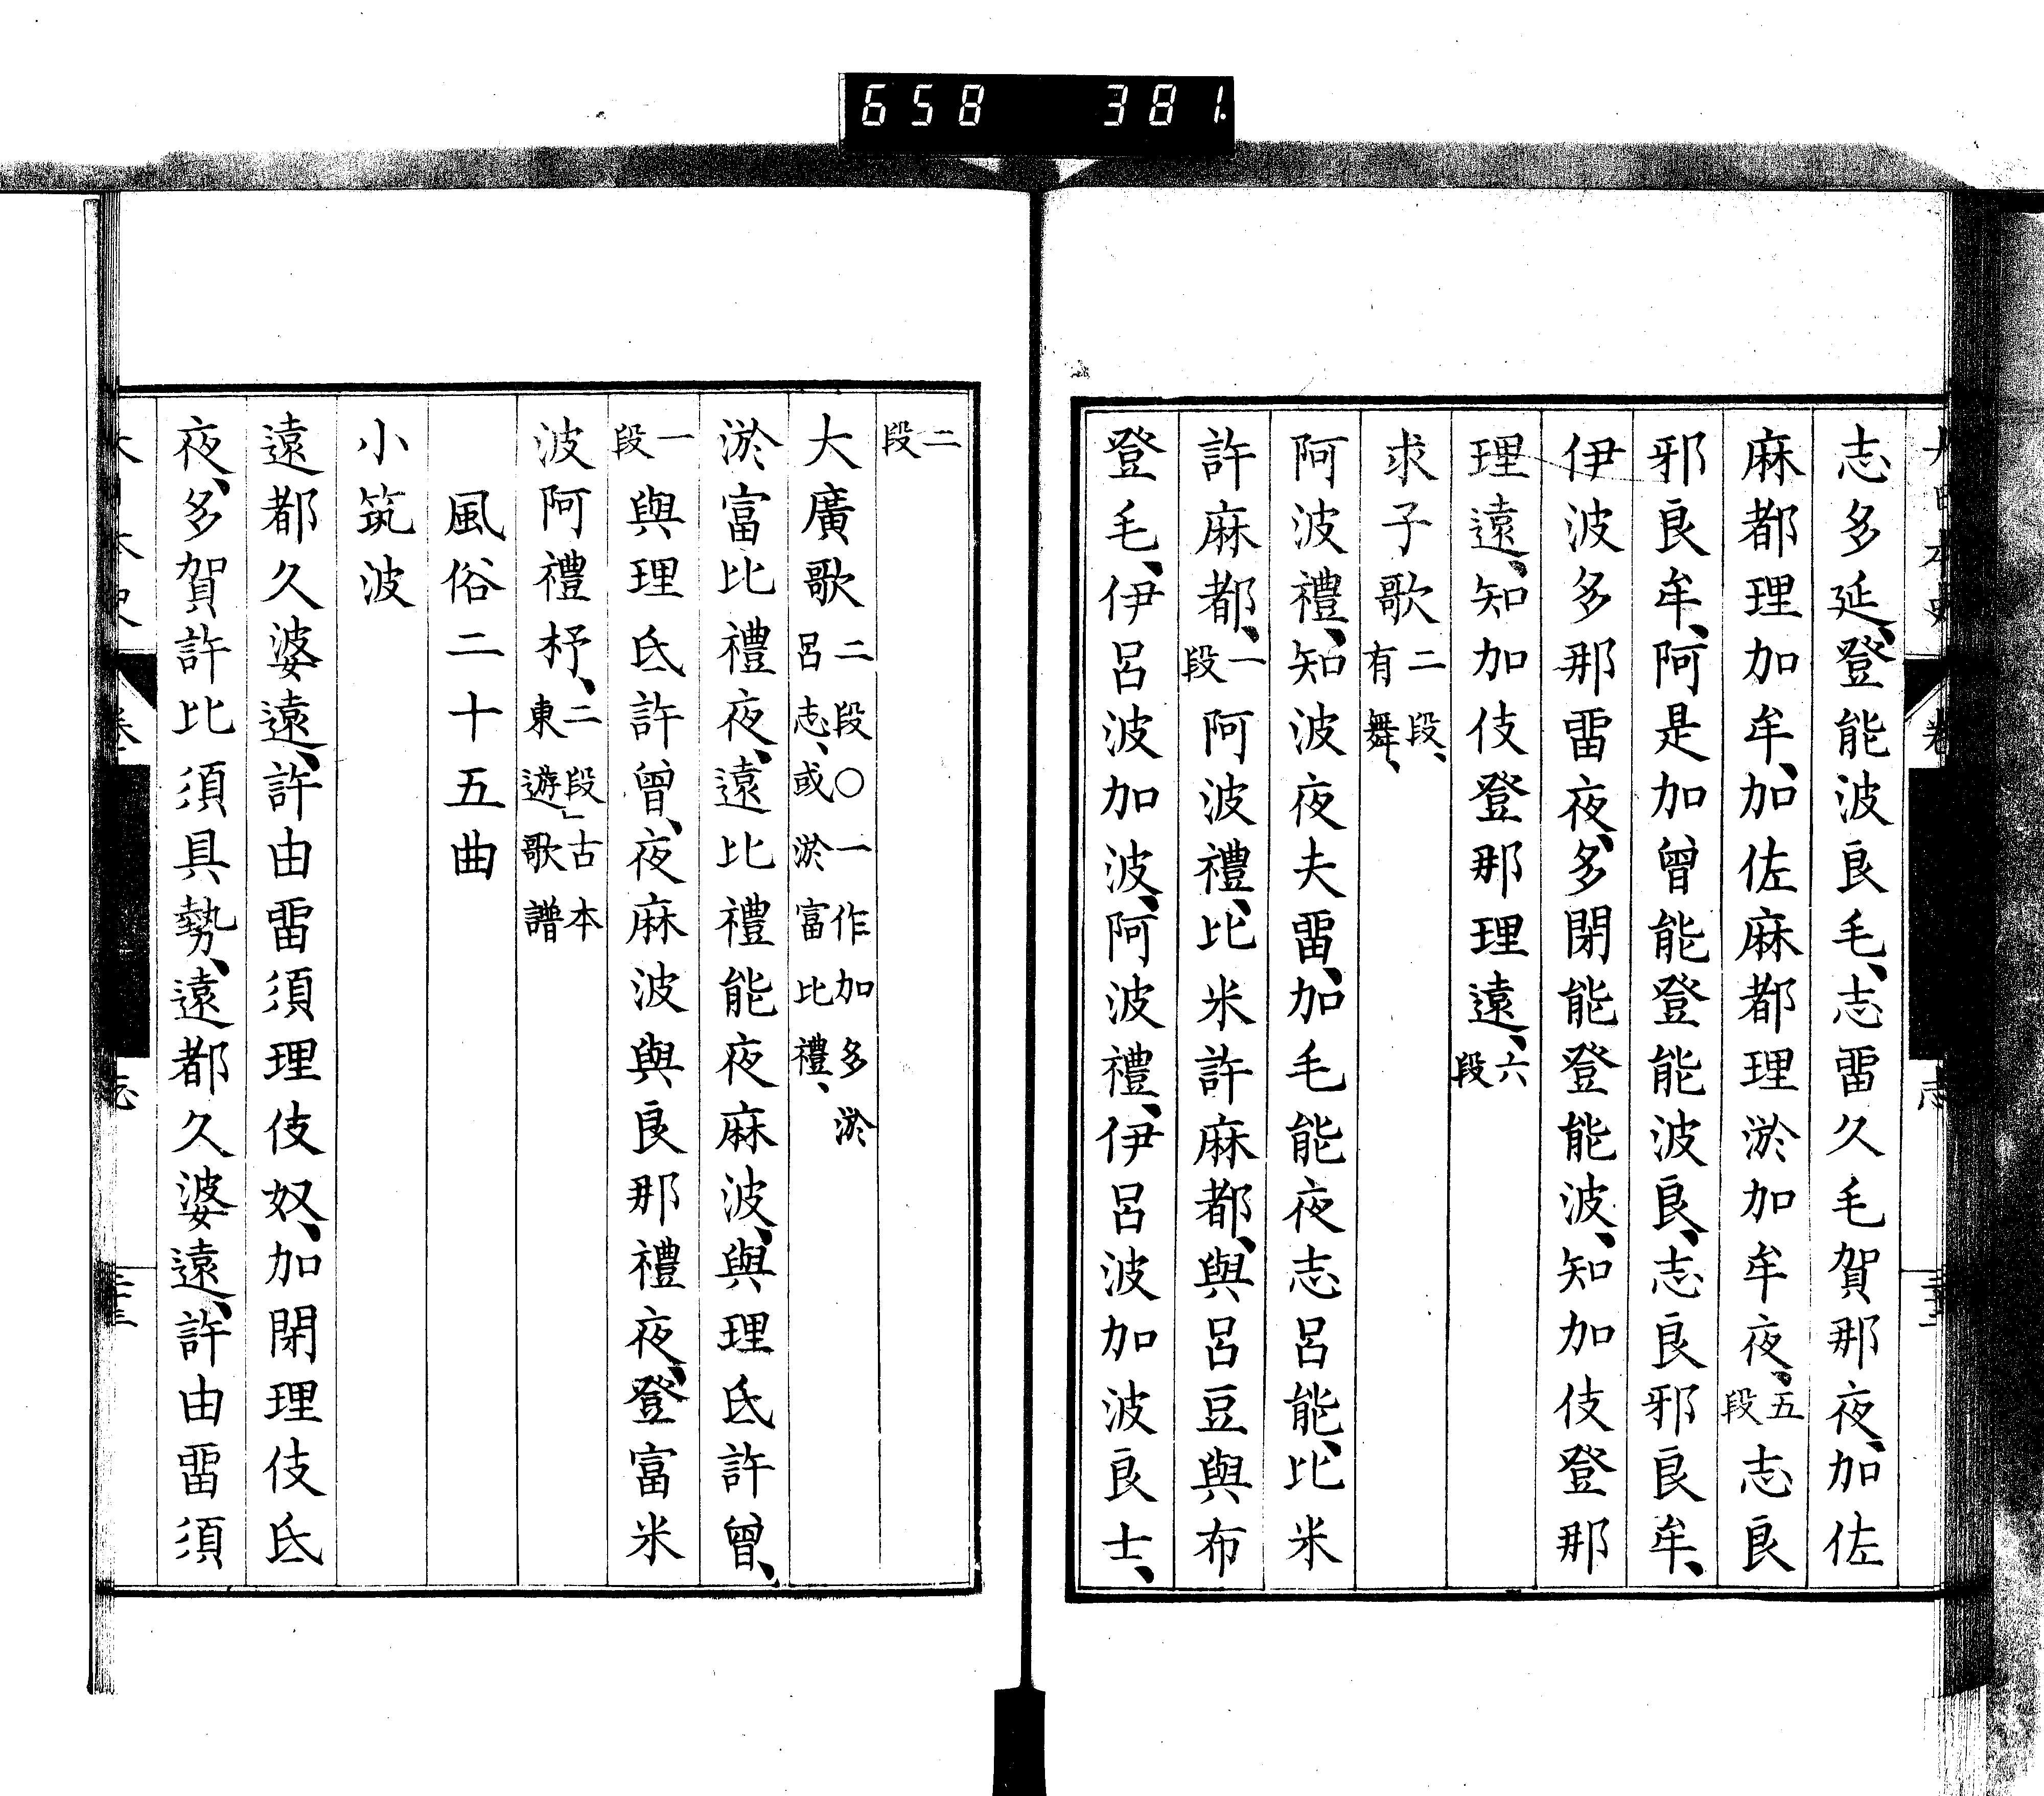 658 381
志多延、登能波良毛、志畱久毛賀那夜、加佐
麻都理加牟、加佐麻都理淤加牟夜、五段志良
邪良牟、阿是加曾能登能波良、志良邪良牟、
伊波多那畱夜、多閇能登能波、知加伎登那
理遠、知加伎登那理遠、六段
求子歌二段、有舞、
阿波禮、知波夜夫畱、加毛能夜志呂能、比米
許麻都、一段阿波禮、比米許麻都、與呂豆與布
登毛、伊呂波加波、阿波禮、伊呂波加波良士、
二段
大廣歌二段〇一作加多淤呂志、或淤富比禮、
淤富比禮夜、遠比禮能夜麻波、與理氐許曾、
一段與理氐許曾、夜麻波與良那禮夜、登富米
波阿禮杼、二段」古本東遊歌譜
風俗二十五曲
小筑波
遠都久婆遠、許由畱須理伎奴、加閇理伎氐
夜、多賀許比須具勢、遠都久婆遠、許由畱須